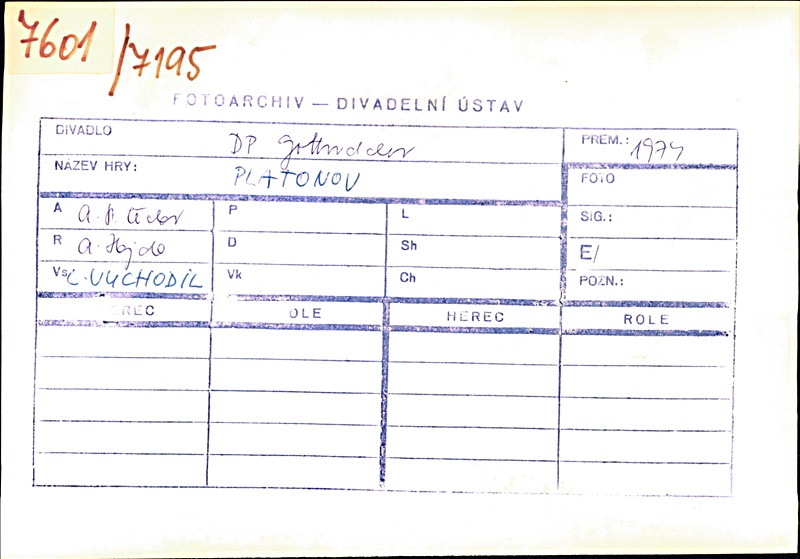 7601
/7195
FOTOARCHIV — DIVADELNÍ ÚSTAV
DIVADLO DP Gottwaldov PREM.: 1974
NÁZEV HRY: PLATONOV FOTO
A A. P. Čechov P L SIG.:
R A. Hajda D Sh E/
Vs L. VYCHODIL Vk Ch POZN.:
HEREC ROLE HEREC ROLE